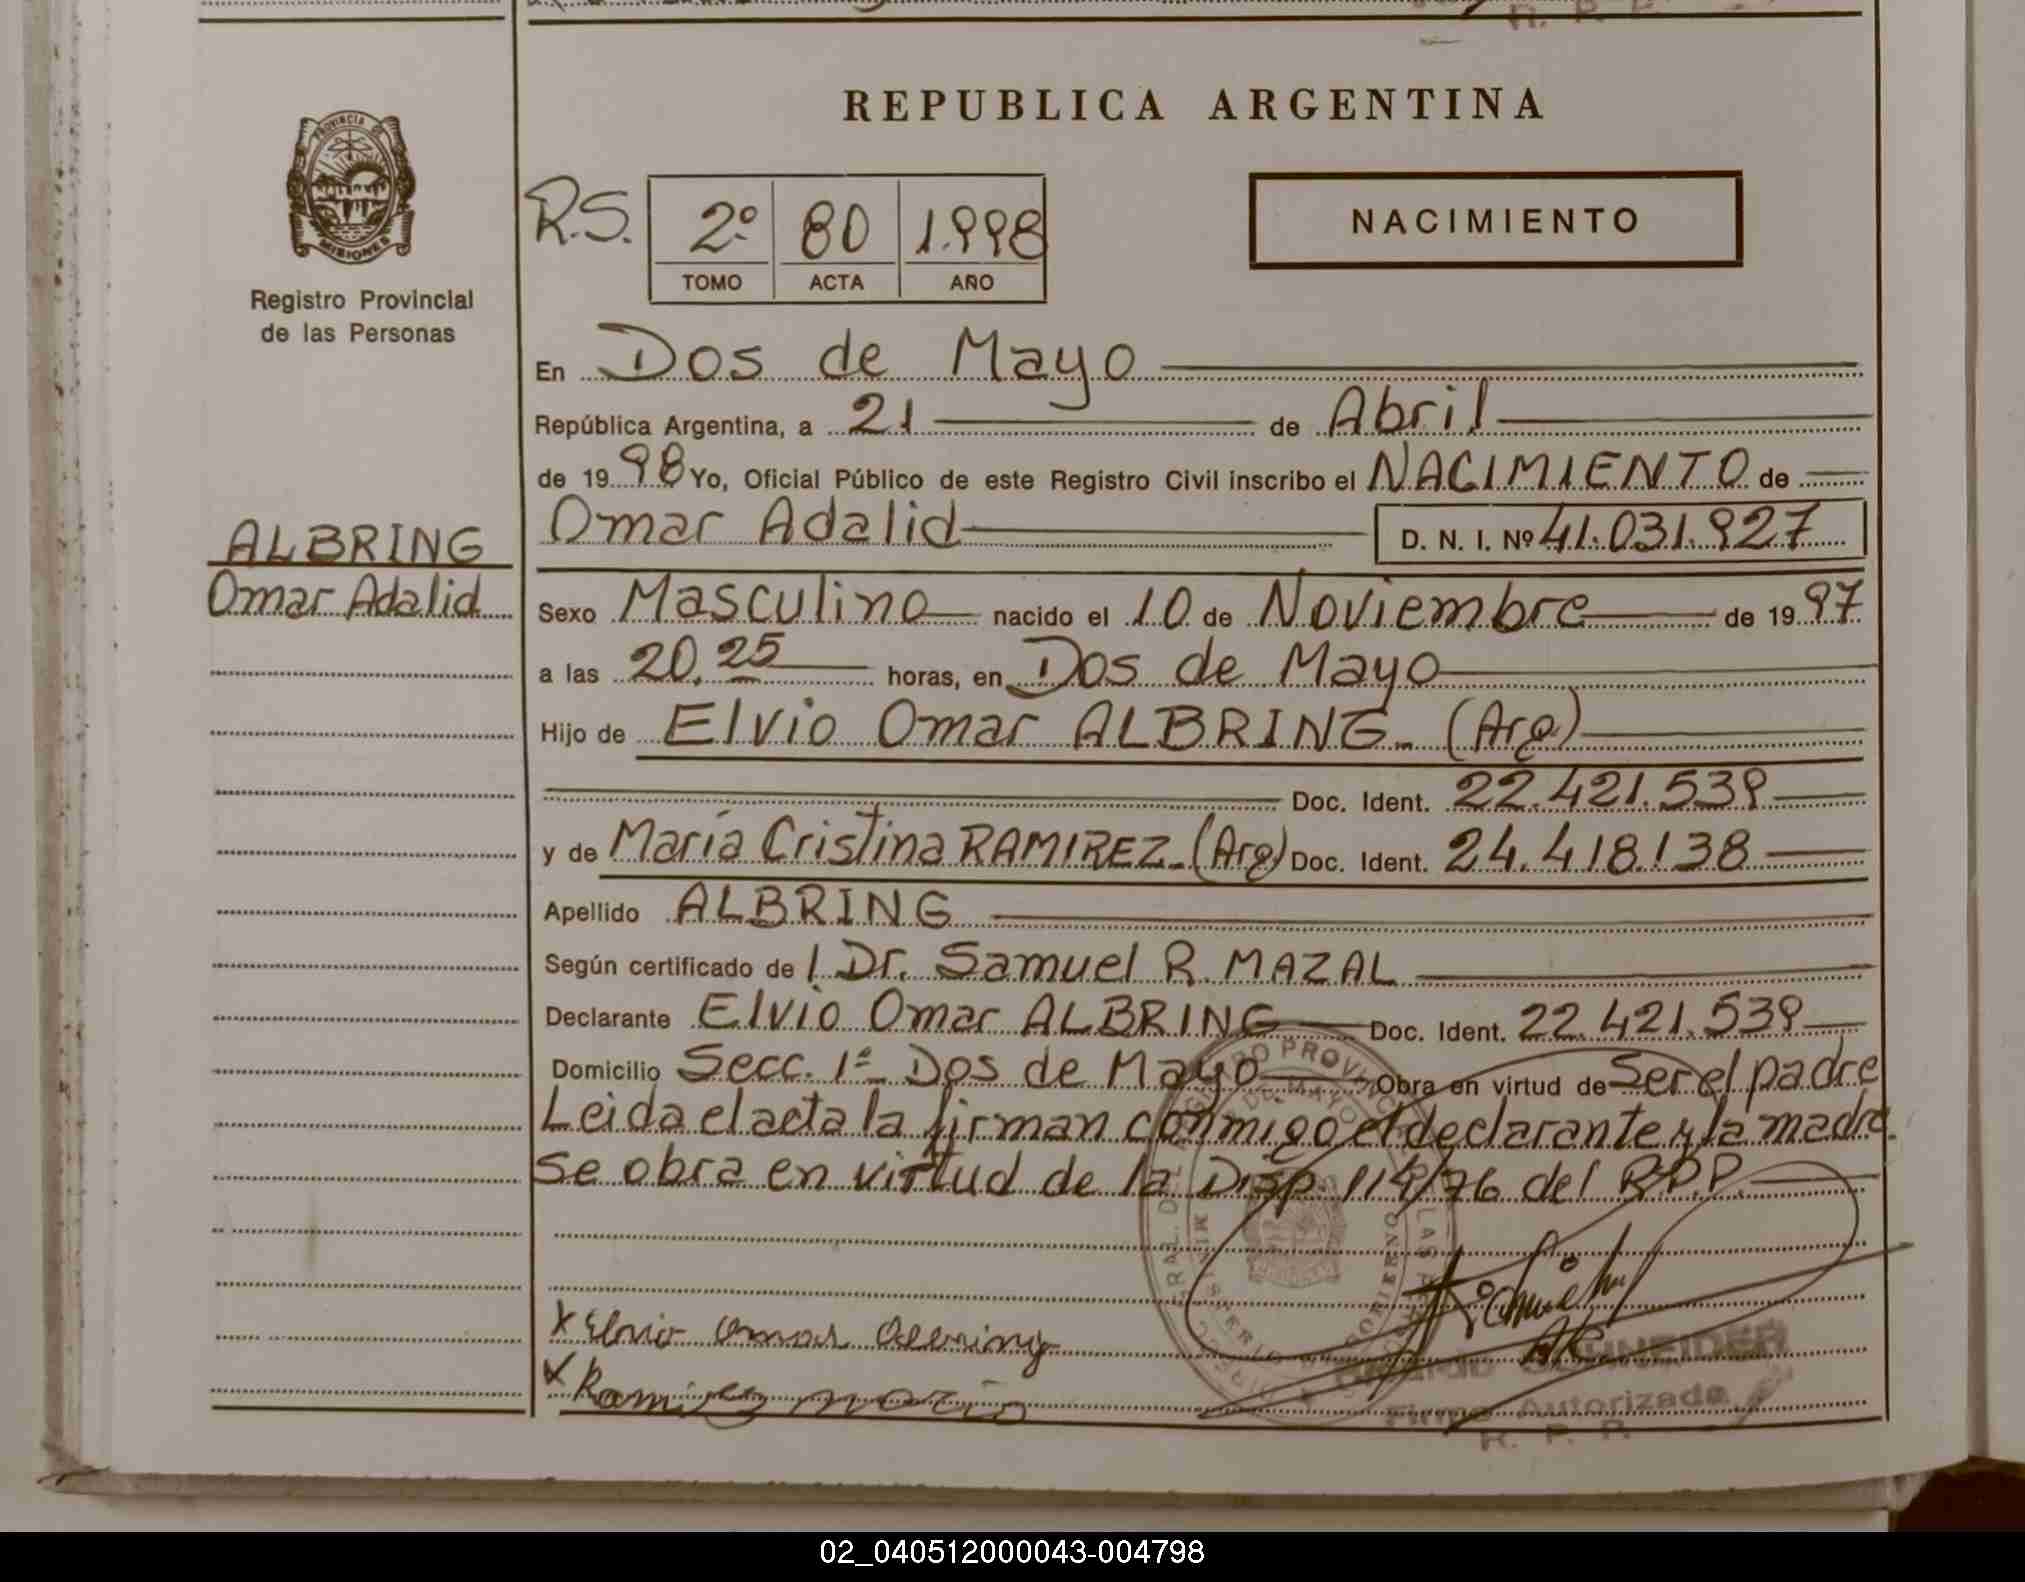 REPUBLICA ARGENTINA
PROVINCIA DE
MISIONES
Registro Provincial
de las Personas
R.S.
2º 80 1.998
TOMO ACTA AÑO
NACIMIENTO
En Dos de Mayo
República Argentina, a 21 de Abril
de 1998 Yo, Oficial Público de este Registro Civil inscribo el NACIMIENTO de
ALBRING
Omar Adalid
Omar Adalid D. N. I. Nº 41.031.927
Sexo Masculino nacido el 10 de Noviembre de 1997
a las 20,25 horas, en Dos de Mayo
Hijo de Elvio Omar ALBRING (Arg)
Doc. Ident. 22.421.539
y de María Cristina RAMIREZ (Arg) Doc. Ident. 24.418.138
Apellido ALBRING
Según certificado de l Dr. Samuel R. MAZAL
Declarante Elvio Omar ALBRING Doc. Ident. 22.421.539
Domicilio Secc. 1ª Dos de Mayo Obra en virtud de Ser el padre
Leida el acta la firman conmigo el declarante y la madre.
se obra en virtud de la Disp. 114/76 del R.P.P.
x Elvio Omar Albring
x Ramirez Maria
SCHNEIDER
Firma Autorizada
R. P. P.
02_040512000043-004798